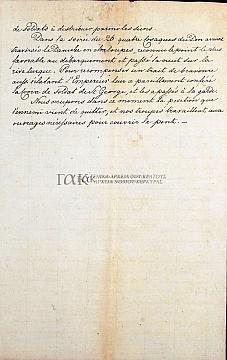 de soldats à distribuer parmi les siens.
Dans la soirée du 26 quatre Cosaques du Don ayant
traversés le Danube en chaloupes, reconnu le point le plus
favorable au débarquement et passé la nuit sur la
rive turque. Pour récompenser un trait de bravoure
aussi éclatant l'Empereur leur a pareillement conféré
la Croix de Soldat de St George, et les a passés à la garde.
Nous occupons dans ce moment la position que
l'ennemi vient de quitter, et nos troupes travaillent aux
ouvrages nécessaires pour couvrir le pont. —
ΓΑΚ
ΓΕΝΙΚΑ ΑΡΧΕΙΑ ΤΟΥ ΚΡΑΤΟΥΣ
ΑΡΧΕΙΑ ΝΟΜΟΥ ΚΕΡΚΥΡΑΣ